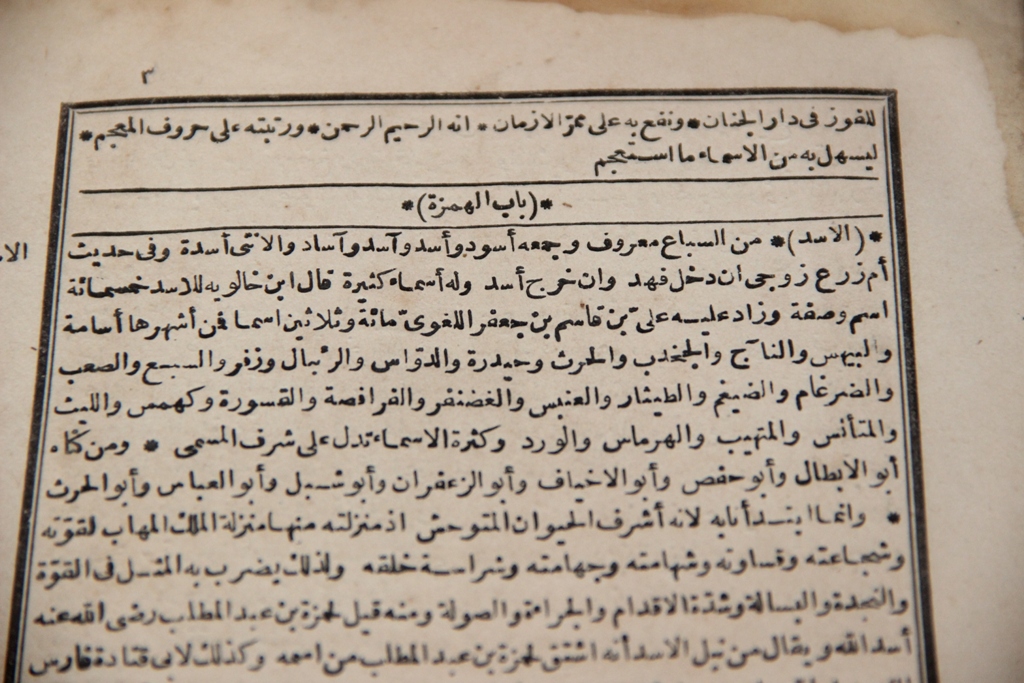 ٣
للفوز فى دار الجنان * ونفع به على ممر الازمان * انه الرحيم الرحمن * ورتبته على حروف المعجم *
ليسهل به من الاسماء ما استعجم
* (باب الهمزة) *
* (الاسد) * من السباع معروف وجمعه أسود وأسد وآسد وآساد والانثى أسدة وفى حديث
الا
أم زرع زوجى ان دخل فهد وان خرج أسد وله أسماء كثيرة قال ابن خالويه للاسد خمسمائة
اسم وصفة وزاد عليه على بن قاسم بن جعفر اللغوى مائة وثلاثين اسما فمن أشهرها أسامة
والبيهس والنا ج والجخدب والحرث وحيدرة والدواس والرئبال وزفر والسبع والصعب
والضرغام والضيغم والطيثار والعنبس والغضنفر والفرافصة والقسورة وكهمس والليث
والمتأنس والمتهيب والهرماس والورد وكثرة الاسماء تدل على شرف المسمى * ومن كناه
أبو الابطال وأبو حفص وأبو الاخياف وأبو الزعفران وأبو شبل وأبو العباس وأبو الحرث
* وانما ابتدأنا به لانه أشرف الحيوان المتوحش اذ منزلته منها منزلة الملك المهاب لقوته
وشجاعته وقساوته وشهامته وجهامته وشراسة خلقه ولذلك يضرب به المثل فى القوة
والنجدة والبسالة وشدة الاقدام والجراءة والصولة ومنه قيل لحمزة بن عبد المطلب رضى الله عنه
أسد الله ويقال من نبل الاسد أنه اشتق لحمزة بن عبد المطلب من اسمه وكذلك لابى قتادة فارس